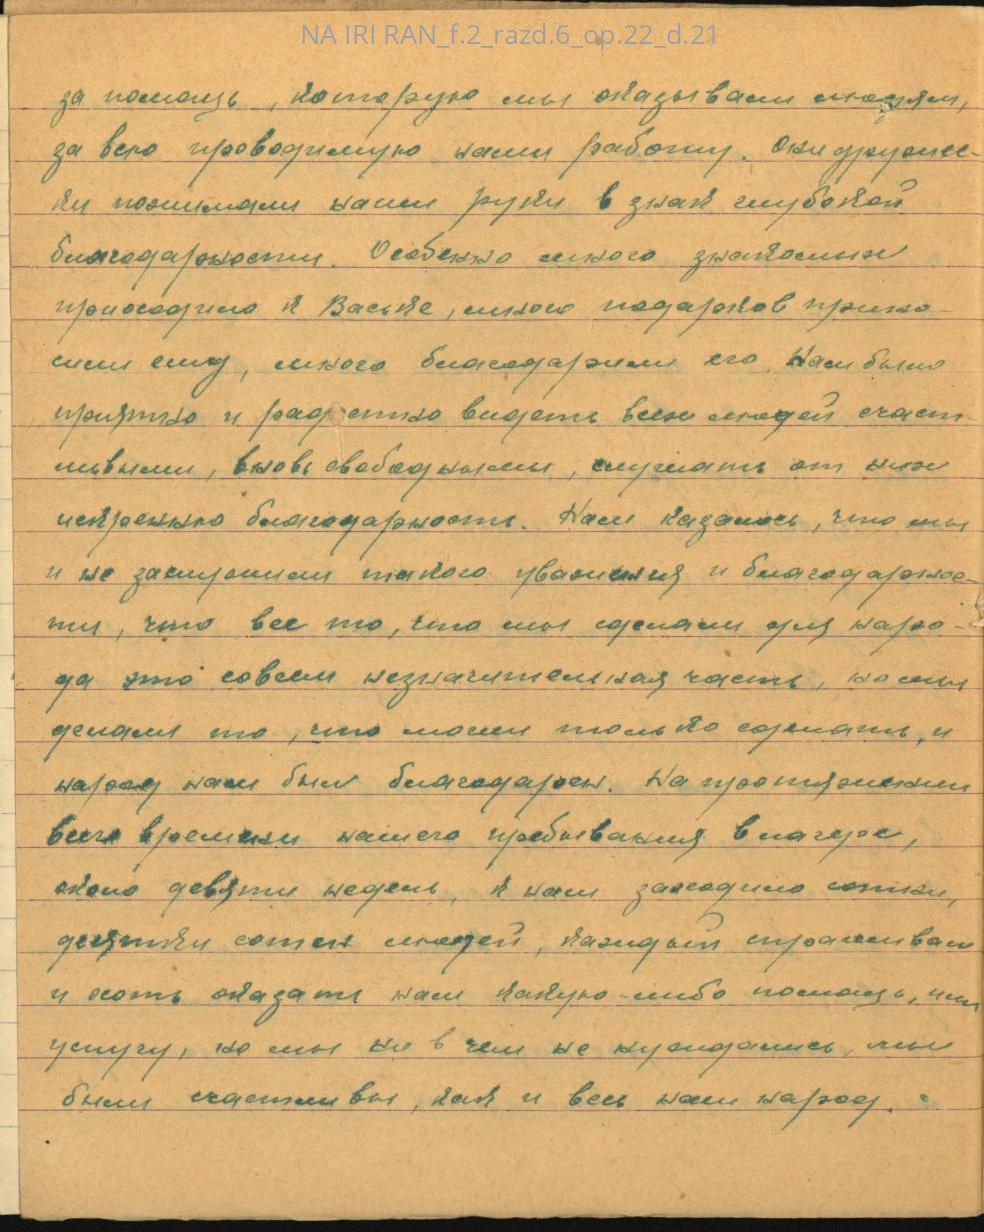 NA IRI RAN_f.2_razd.6_op.22_d.21
за помощь, которую мы оказывали людям,
за всю проводимую нами работу. Они дружес-
ки пожимали наши руки в знак глубокой
благодарности. Особенно много знакомых
приходило к Ваське, много подарков прино-
сили ему, много благодарили его. Нам было
приятно и радостно видеть всех людей счаст-
ливыми, вновь свободными, слушать от них
искреннюю благодарность. Нам казалось, что мы
и не заслужили такого уважения и благодарнос-
ти, что все то, что мы сделали для наро-
да это совсем незначительная часть, но мы
делали то, что могли только сделать, и
народ нам был благодарен. На протяжении
всего времени нашего пребывания в лагере,
около девяти недель, к нам заходило сотни,
десятки сотен людей, каждый спрашивал
и хоть оказать нам какую-либо помощь, или
услугу, но мы ни в чем не нуждались, мы
были счастливы, как и весь наш народ.